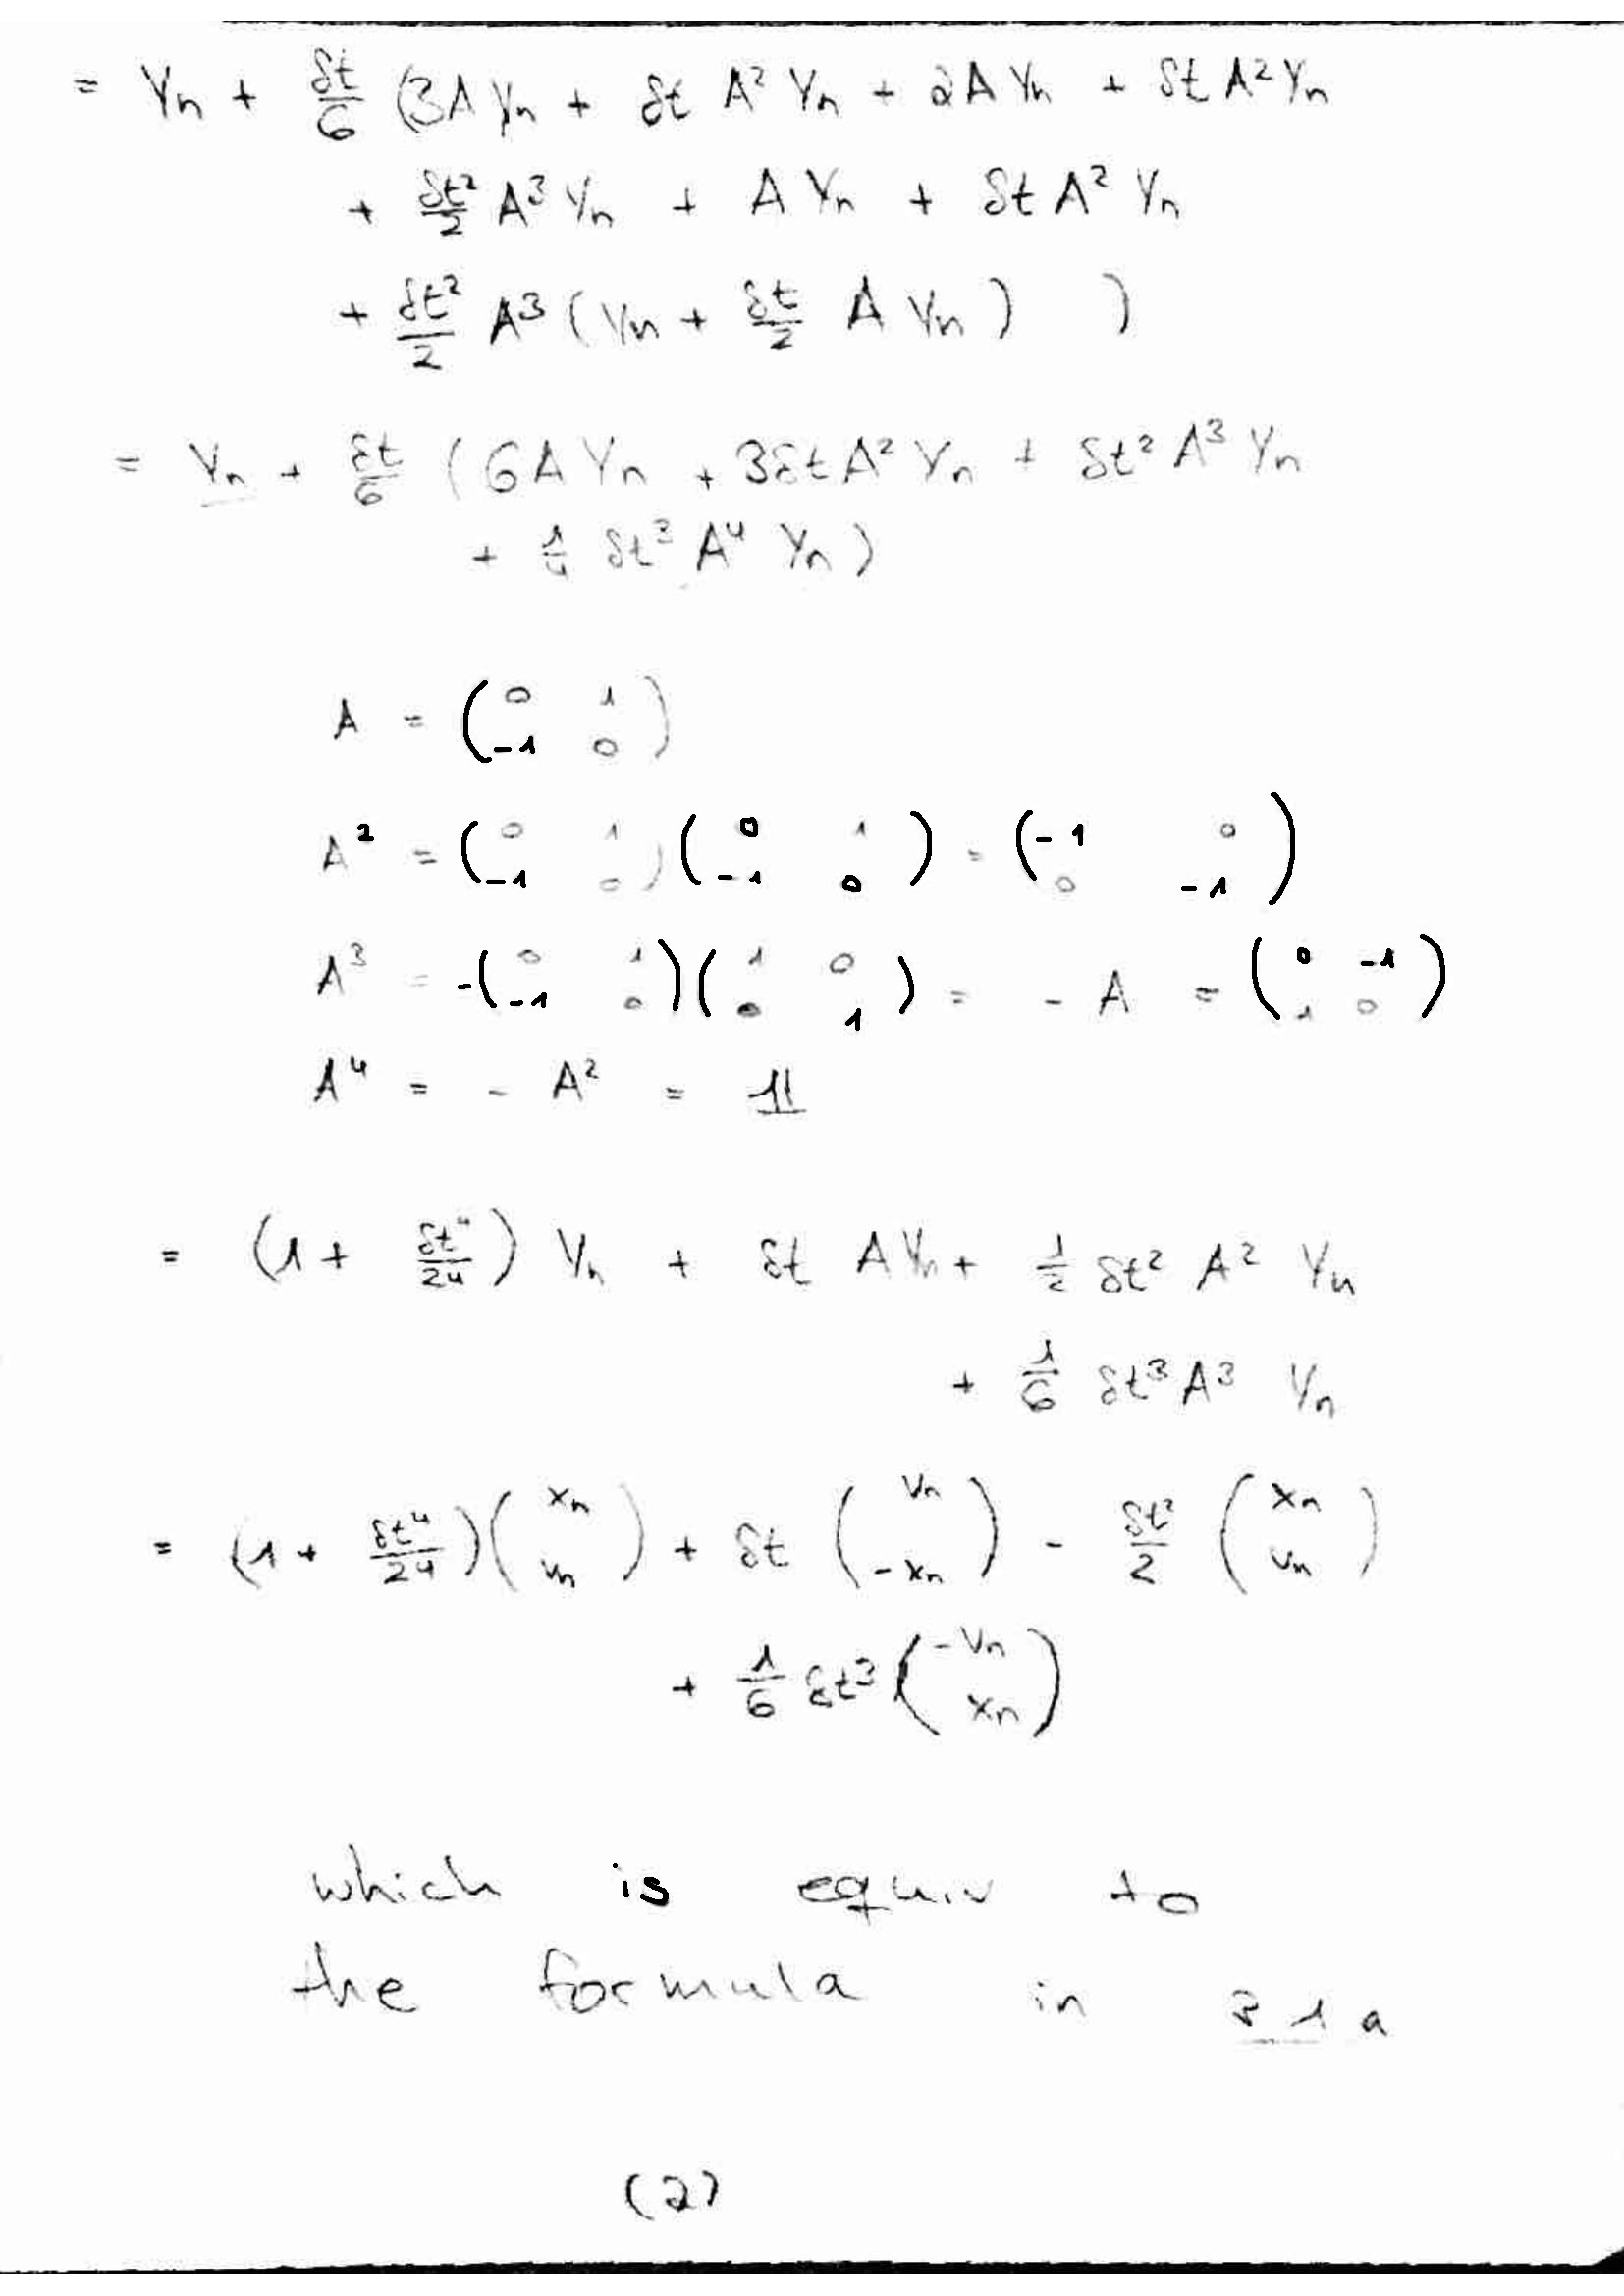 = Yn + δt/6 (3A Yn + δt A² Yn + 2A Yn + δt A² Yn
+ δt²/2 A³ Yn + A Yn + δt A² Yn
+ δt²/2 A³ (Yn + δt/2 A Yn) )
= Yn + δt/6 (6A Yn + 3δt A² Yn + δt² A³ Yn
+ 1/4 δt³ A⁴ Yn)
A = (0 1; -1 0)
A² = (0 1; -1 0) (0 1; -1 0) = (-1 0; 0 -1)
A³ = -(0 1; -1 0) (1 0; 0 1) = - A = (0 -1; 1 0)
A⁴ = - A² = 𝟙
= (1 + δt⁴/24) Yn + δt A Yn + 1/2 δt² A² Yn
+ 1/6 δt³ A³ Yn
= (1 + δt⁴/24) (xn; vn) + δt (vn; -xn) - δt²/2 (xn; vn)
+ 1/6 δt³ (-vn; xn)
which is equiv to
the formula in 3 1 a
(2)